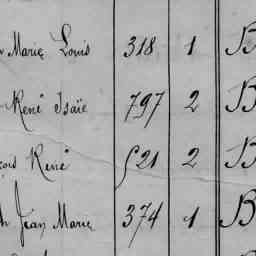 Marie Louis 318 1 B
René Isaïe 797 2 B
René 521 2 B
Jean Marie 374 1 B